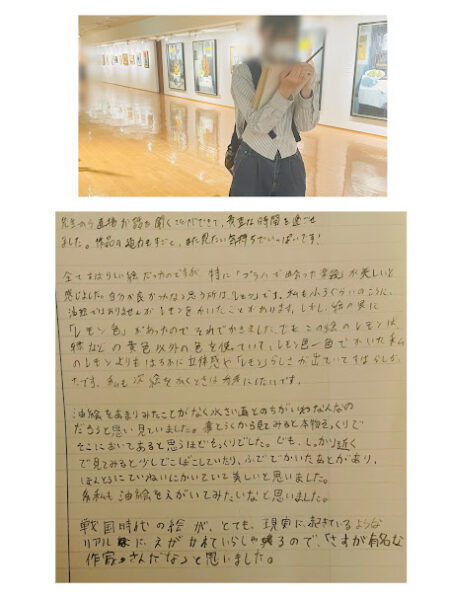 先生から直接お話を聞くことができて、貴重な時間を過ごせ
ました。作品の迫力もすごく、また見たい気持ちでいっぱいです!
全てすばらしい絵だったのですが、特に「プラハで出会った
が美しいと
感じました。自分が良かったなと思う所はレモンです。私も
油絵ではありませんがレモンをかいたことがあります。しかし、絵の具に
「レモン色」があったのでそれでかきました。でもこの絵のレモンは、
緑などの黄色以外の色を使っていて、レモン色一色でかいた私
のレモンよりもはるかに立体感や「レモン」らしさが出ていてすばらしか
ったです。私も次絵をかくときは参考にしたいです。
油絵をあまりみたことがなく水さい画とのちがいはなんなの
だろうと思い見ていました。遠くから見てみると本物そっくりで
そこにおいてあると思うほどそっくりでした。でも、しっかり近く
で見てみると少しでこぼこしていたり、ふででかいたあとがあり、
ほんとうにていねいにかいていて美しいと思いました。
私も油絵をえがいてみたいなと思いました。
戦国時代の絵が、とても、現実に起きているような
リアルにえがかれていらっしゃるので、さすが有名な
作家さんだなあと思いました。